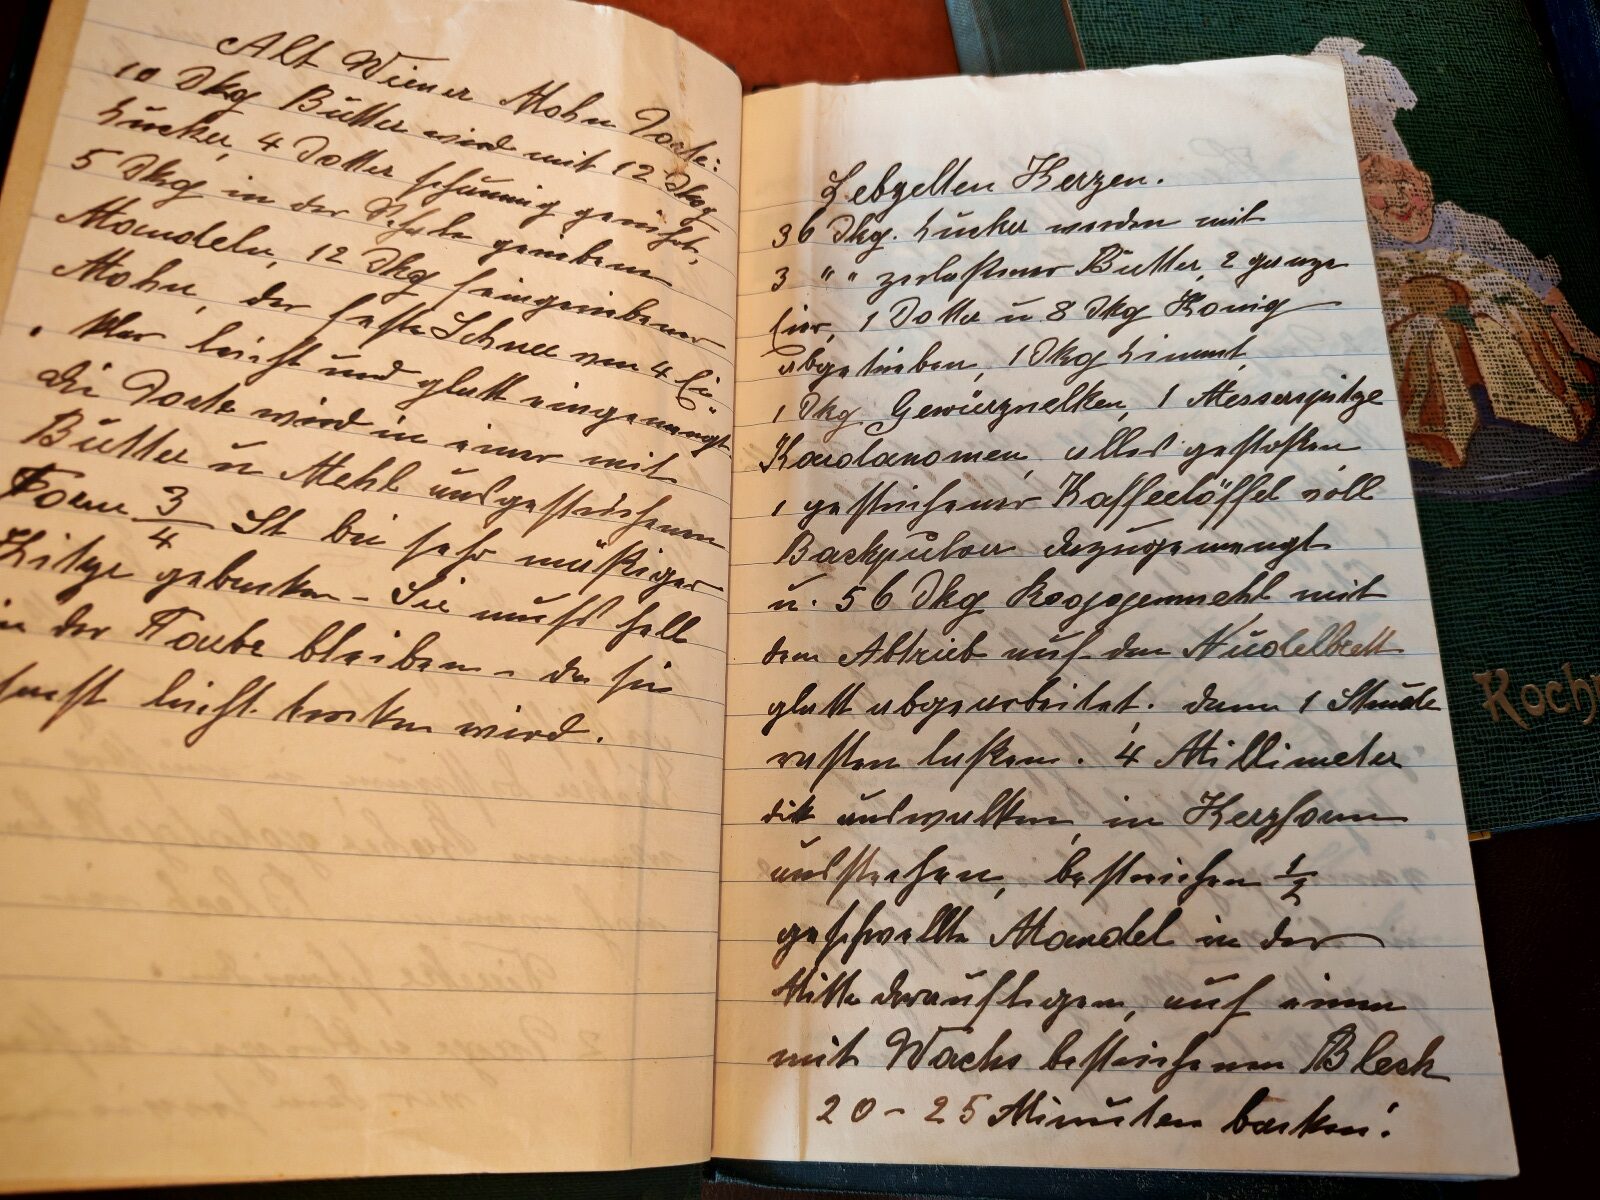 Alt Wiener Mohn Torte:
10 Dkg Butter wird mit 12 Dkg
Zucker, 4 Dotter schaumig gerührt,
5 Dkg in der Schale geriebene
Mandeln, 12 Dkg feingeriebener
Mohn, der feste Schnee von 4 Ei-
klar leicht und glatt eingemengt
die Torte wird in einer mit
Butter u Mehl ausgestrichenen
Form 3/4 St bei sehr mäßiger
Hitze gebacken – Sie muß hell
in der Farbe bleiben – da sie
sonst leicht trocken wird.
Lebzelten Herzen.
36 Dkg. Zucker werden mit
3 " " zerlaßener Butter, 2 ganze
Eier, 1 Dotter u 8 Dkg Honig
abgetrieben, 1 Dkg Zimmt,
1 Dkg Gewürznelken, 1 Messerspitze
Kardanomen, alles gestoßen
1 gestrichener Kaffeelöffel voll
Backpulver dazugemengt
u. 56 Dkg Roggenmehl mit
dem Abtrieb auf dem Nudelbrett
glatt abgearbeitet. dann 1 Stunde
rasten laßen. 4 Millimeter
dik auswalken, in Herzform
ausstechen, bestreichen 1/2
geschwellte Mandel in der
Mitte darauflegen, auf einem
mit Wachs bestrichenen Blech
20 – 25 Minuten backen!
Koch